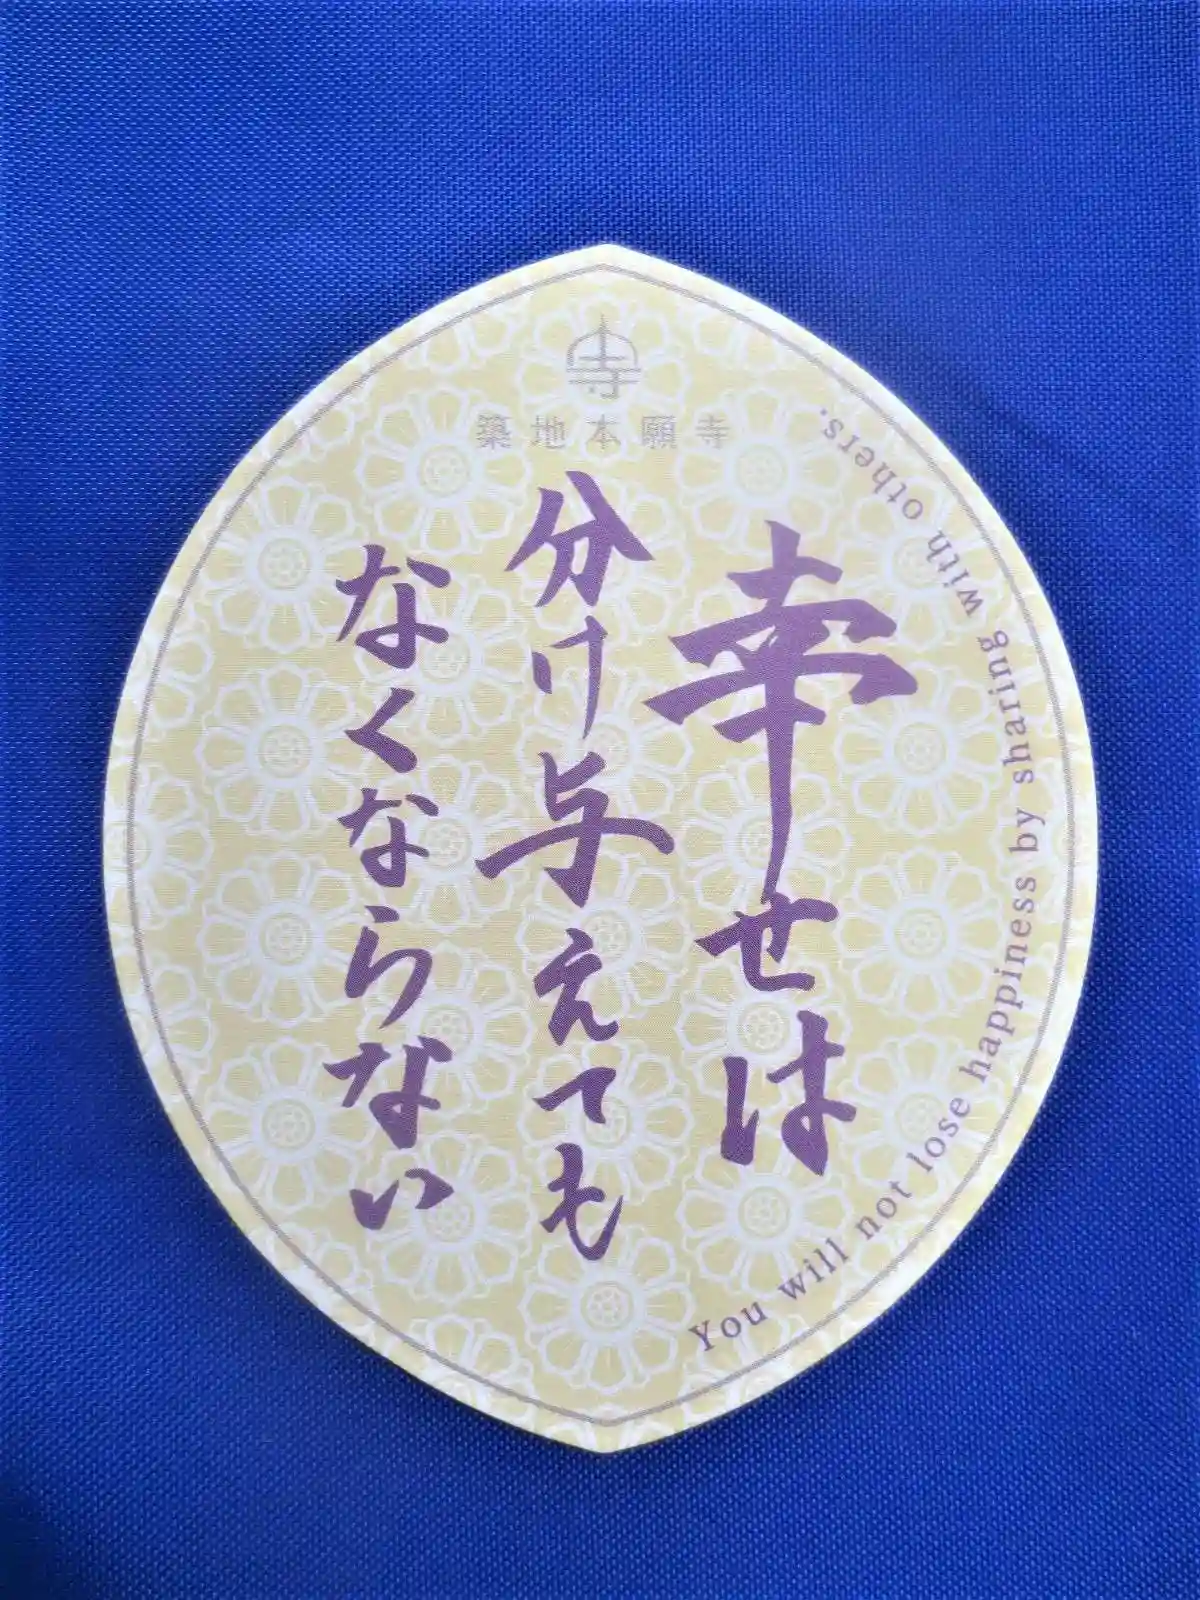 築地本願寺
幸せは
分け与えても
なくならない
You will not lose happiness by sharing with others.